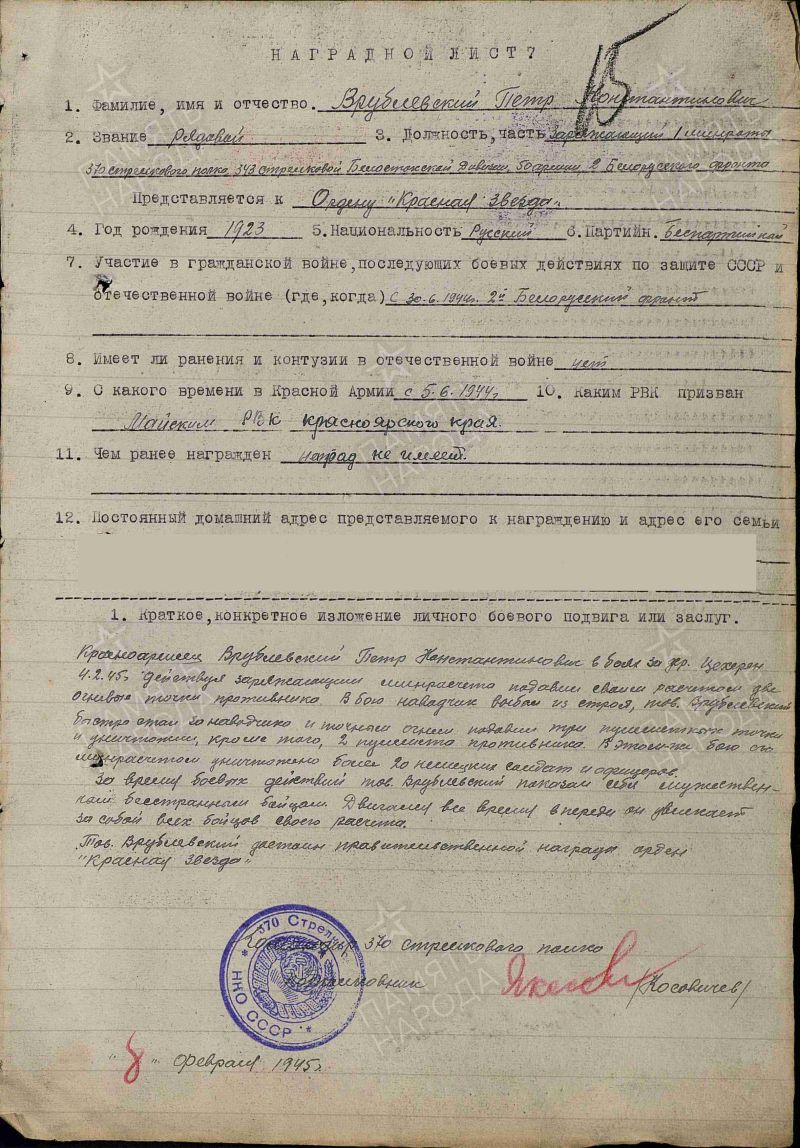 НАГРАДНОЙ ЛИСТ 7
15
1. Фамилие, имя и отчество. Врублевский Петр Константинович
2. Звание Рядовой 3. Должность, часть заряжающий 1 минроты
370 стрелкового полка, 343 стрелковой Белостокской Дивизии, 50 армии, 2 Белорусского фронта
Представляется к Ордену "Красная Звезда"
4. Год рождения 1923 5. Национальность Русский 6. Партийн. Беспартийный
7. Участие в гражданской войне, последующих боевых действиях по защите СССР и
отечественной войне (где, когда) с 30.6.1944г. 2й Белорусский фронт
8. Имеет ли ранения и контузии в отечественной войне нет
9. С какого времени в Красной Армии с 5.6.1944г 10. Каким РВК призван
Майским РВК Красноярского края.
11. Чем ранее награжден наград не имеет.
12. Постоянный домашний адрес представляемого к награждению и адрес его семьи
1. Краткое, конкретное изложение личного боевого подвига или заслуг.
Красноармеец Врублевский Петр Константинович в боях за гор. Цехерен
4.2.45г. действуя заряжающим минрасчета подавил своим расчетом две
огневые точки противника. В бою наводчик выбыл из строя, тов. Врублевский
быстро стал за наводчика и точным огнем подавил три пулеметных точки
и уничтожил, кроме того, 2 пулемета противника. В этом-же бою его
минрасчетом уничтожено более 20 немецких солдат и офицеров.
За время боевых действий тов. Врублевский показал себя мужествен-
ным бесстрашным бойцом. Двигаясь все время вперед он увлекает
за собой всех бойцов своего расчета.
Тов. Врублевский достоин правительственной награды орден
"Красная Звезда"
Командир 370 стрелкового полка
подполковник (Косович)
370 Стрелк
НКО СССР
"8" февраля 1945г.
ПАМЯТЬ НАРОДА